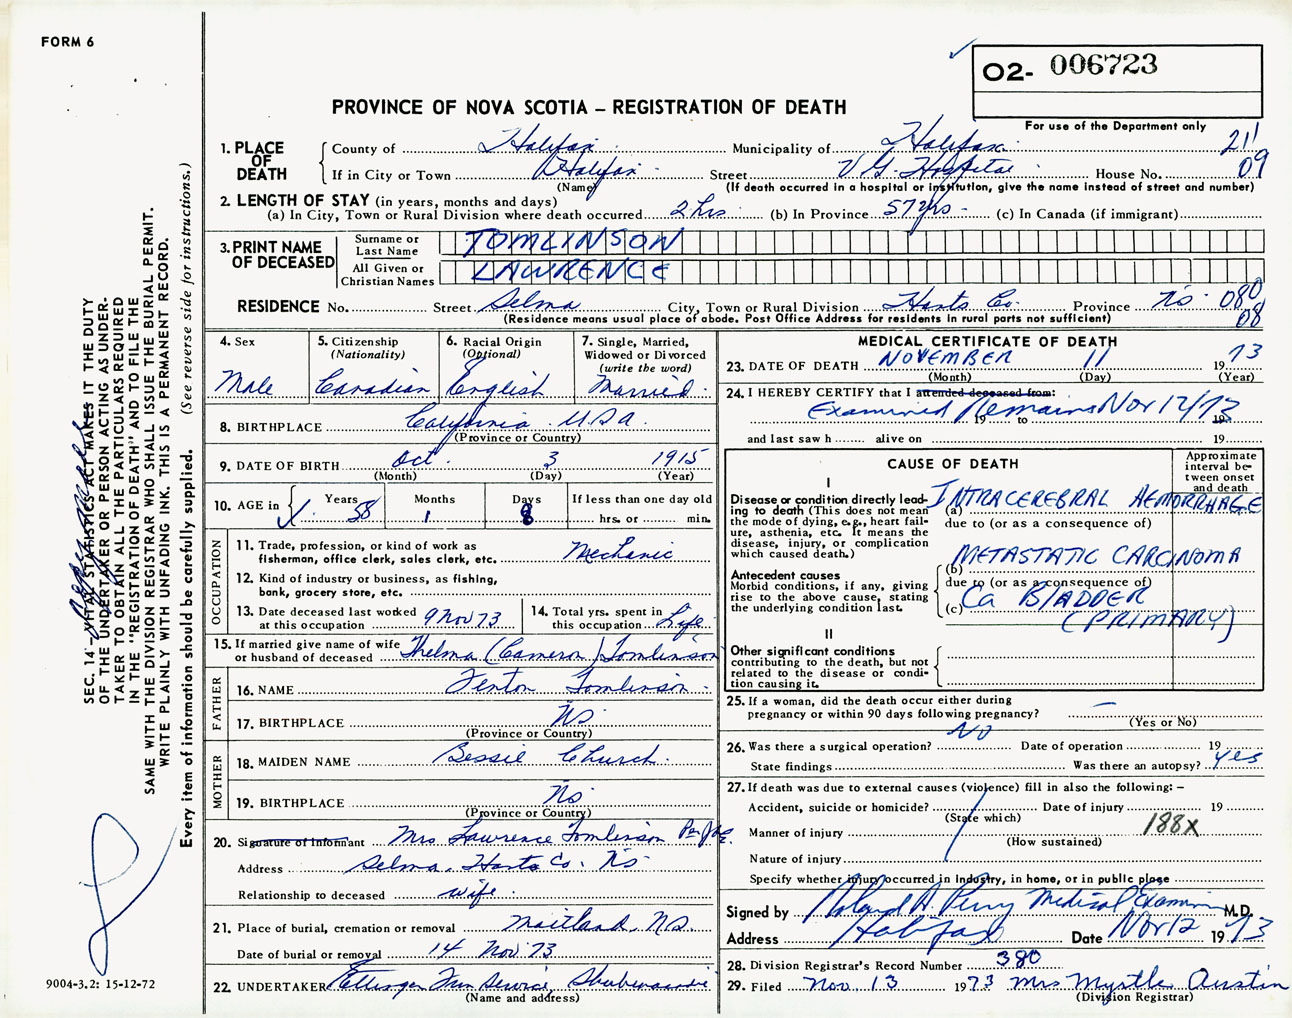 FORM 6
O2- 006723
PROVINCE OF NOVA SCOTIA – REGISTRATION OF DEATH
For use of the Department only
1. PLACE OF DEATH County of Halifax Municipality of Halifax 211
If in City or Town Halifax Street V G. Hospital House No. 09
(Name) (If death occurred in a hospital or institution, give the name instead of street and number)
2. LENGTH OF STAY (in years, months and days)
(a) In City, Town or Rural Division where death occurred 2 hrs (b) In Province 57 yrs - (c) In Canada (if immigrant)
3. PRINT NAME OF DECEASED Surname or Last Name TOMLINSON
All Given or Christian Names LAWRENCE
RESIDENCE No. Street Selma City, Town or Rural Division Hants Co. Province NS 080
(Residence means usual place of abode. Post Office Address for residents in rural parts not sufficient) 08
4. Sex Male
5. Citizenship (Nationality) Canadian
6. Racial Origin (Optional) English
7. Single, Married, Widowed or Divorced (write the word) Married
8. BIRTHPLACE California U.S.A.
(Province or Country)
9. DATE OF BIRTH Oct. 3 1915
(Month) (Day) (Year)
10. AGE in Years 58 Months 1 Days 8 If less than one day old
hrs. or min.
OCCUPATION
11. Trade, profession, or kind of work as fisherman, office clerk, sales clerk, etc. Mechanic
12. Kind of industry or business, as fishing, bank, grocery store, etc.
13. Date deceased last worked at this occupation 9 Nov 73
14. Total yrs. spent in this occupation Life
15. If married give name of wife or husband of deceased Thelma (Cameron) Tomlinson
FATHER
16. NAME Fenton Tomlinson
17. BIRTHPLACE NS
(Province or Country)
MOTHER
18. MAIDEN NAME Bessie Church
19. BIRTHPLACE NS
(Province or Country)
20. Signature of Informant Mrs Lawrence Tomlinson Per
Address Selma, Hants Co. NS
Relationship to deceased wife
21. Place of burial, cremation or removal Maitland, N.S.
Date of burial or removal 14 Nov 73
22. UNDERTAKER Ettinger Fun Service, Shubenacadie
(Name and address)
MEDICAL CERTIFICATE OF DEATH
23. DATE OF DEATH NOVEMBER 11 1973
(Month) (Day) (Year)
24. I HEREBY CERTIFY that I attended deceased from:
Examined Remains Nov 12/73
19 to 19
and last saw h alive on 19
CAUSE OF DEATH
Approximate interval between onset and death
I
Disease or condition directly leading to death (This does not mean the mode of dying, e.g., heart failure, asthenia, etc. It means the disease, injury, or complication which caused death.)
(a) INTRACEREBRAL HEMORRHAGE
due to (or as a consequence of)
Antecedent causes
Morbid conditions, if any, giving rise to the above cause, stating the underlying condition last.
(b) METASTATIC CARCINOMA
due to (or as a consequence of)
(c) Ca BLADDER
(PRIMARY)
II
Other significant conditions
contributing to the death, but not related to the disease or condition causing it.
25. If a woman, did the death occur either during pregnancy or within 90 days following pregnancy? –
(Yes or No)
26. Was there a surgical operation? NO Date of operation 19
State findings Was there an autopsy? Yes
27. If death was due to external causes (violence) fill in also the following: –
Accident, suicide or homicide? Date of injury 19
(State which)
Manner of injury 188X
(How sustained)
Nature of injury
Specify whether injury occurred in Industry, in home, or in public place
Signed by Roland A. Perry Medical Examiner M.D.
Address Halifax Date Nov 12 1973
28. Division Registrar's Record Number 380
29. Filed Nov. 13 1973 Mrs Myrtle Austin
(Division Registrar)
SEC. 14 – VITAL STATISTICS ACT MAKES IT THE DUTY
OF THE UNDERTAKER OR PERSON ACTING AS UNDER-
TAKER TO OBTAIN ALL THE PARTICULARS REQUIRED
IN THE "REGISTRATION OF DEATH" AND TO FILE THE
SAME WITH THE DIVISION REGISTRAR WHO SHALL ISSUE THE BURIAL PERMIT.
WRITE PLAINLY WITH UNFADING INK. THIS IS A PERMANENT RECORD.
Every item of information should be carefully supplied. (See reverse side for instructions.)
9004-3.2: 15-12-72